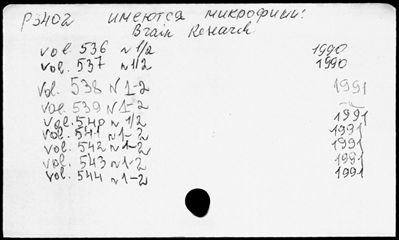 Р3402 имеются микрофиши:
Brain Research
vol 536 N 1/2 1990
vol. 537 N 1/2 1990
Vol. 538 N 1-2 1991
Vol. 539 N 1-2 -"-
vol. 540 N 1/2 1991
vol. 541 N 1-2 1991
vol. 542 N 1-2 1991
vol. 543 N 1-2 1991
vol. 544 N 1-2 1991